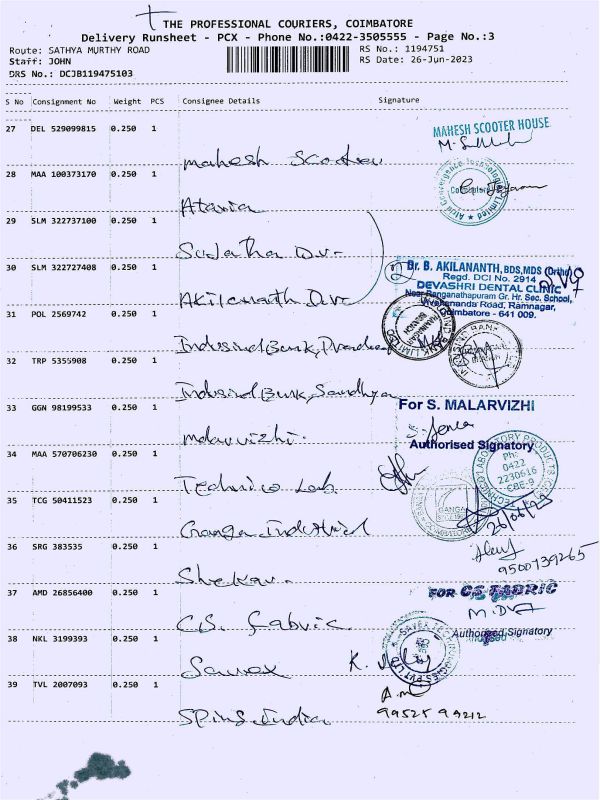 THE PROFESSIONAL COURIERS, COIMBATORE
Delivery Runsheet - PCX - Phone No.:0422-3505555 - Page No.:3
Route: SATHYA MURTHY ROAD RS No.: 1194751
Staff: JOHN RS Date: 26-Jun-2023
DRS No.: DCJB119475103
S No Consignment No Weight PCS Consignee Details Signature
27 DEL 529099815 0.250 1
MAHESH SCOOTER HOUSE
Mahesh Scooter
28 MAA 100373170 0.250 1
Atavia
29 SLM 322737100 0.250 1
Sujatha Dvr
30 SLM 322727408 0.250 1
Dr. B. AKILANANTH, BDS,MDS (Ortho)
Regd. DCI No. 2914
DEVASHRI DENTAL CLINIC
Near Ranganathapuram Gr. Hr. Sec. School,
Vivekananda Road, Ramnagar,
Coimbatore - 641 009.
Akilanath Dvr
31 POL 2569742 0.250 1
Indusind Bank,
32 TRP 5355908 0.250 1
Indusind Bank, Sandhya
33 GGN 98199533 0.250 1
For S. MALARVIZHI
Malarvizhi
Authorised Signatory
34 MAA 570706230 0.250 1
LABORATORY PRODUCTS
Ph:
0422
2230616
CBE-9
Technico Lab
35 TCG 50411523 0.250 1
GANGA
Ganga Industrial
26/06/23
36 SRG 383535 0.250 1
9500739265
Shekar
37 AMD 26856400 0.250 1
FOR CS FABRIC
CS. Fabric
Authorised Signatory
38 NKL 3199393 0.250 1
Savex
K.
39 TVL 2007093 0.250 1
99525 99212
Spins India